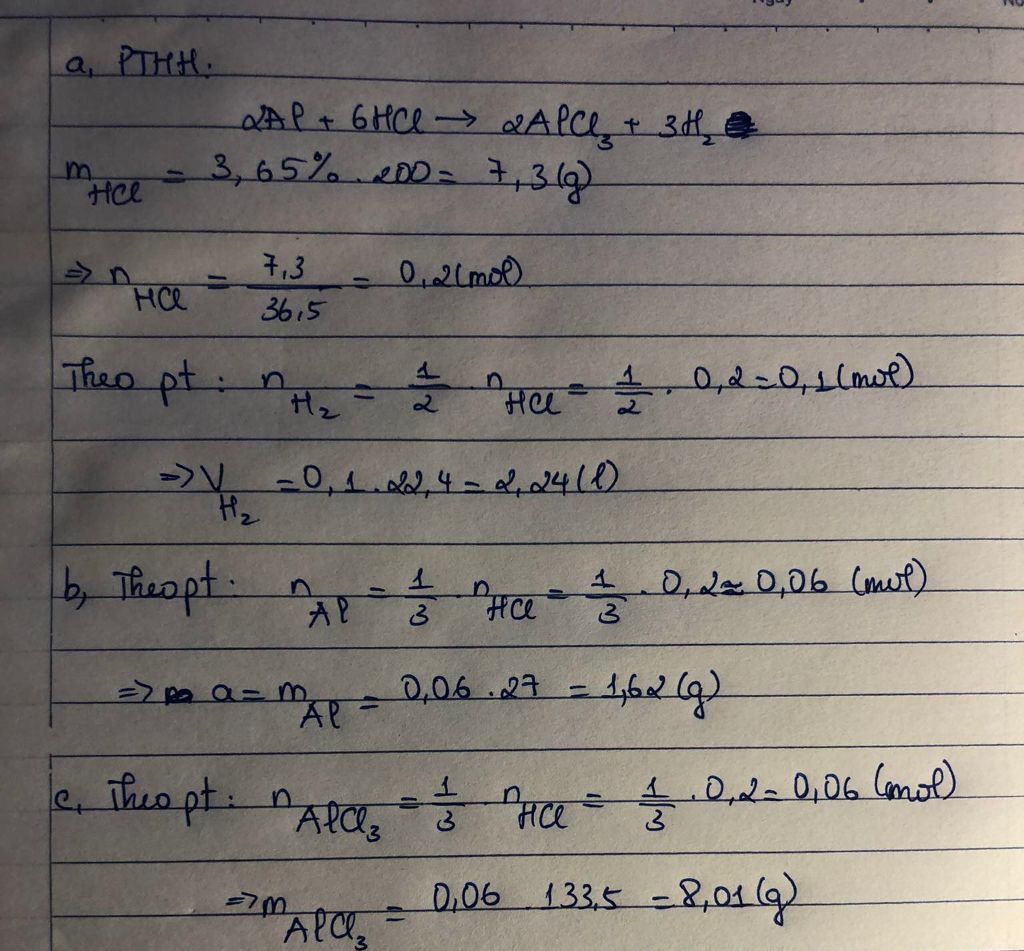 a, PTHH:
2Al + 6HCl → 2AlCl₃ + 3H₂
m_HCl = 3,65% . 200 = 7,3 (g)
=> n_HCl = 7,3/36,5 = 0,2 (mol)
Theo pt : n_H₂ = 1/2 n_HCl = 1/2 . 0,2 = 0,1 (mol)
=> V_H₂ = 0,1 . 22,4 = 2,24 (l)
b, Theo pt : n_Al = 1/3 . n_HCl = 1/3 . 0,2 ≈ 0,06 (mol)
=> a = m_Al = 0,06 . 27 = 1,62 (g)
c, Theo pt : n_AlCl₃ = 1/3 n_HCl = 1/3 . 0,2 = 0,06 (mol)
=> m_AlCl₃ = 0,06 133,5 = 8,01 (g)